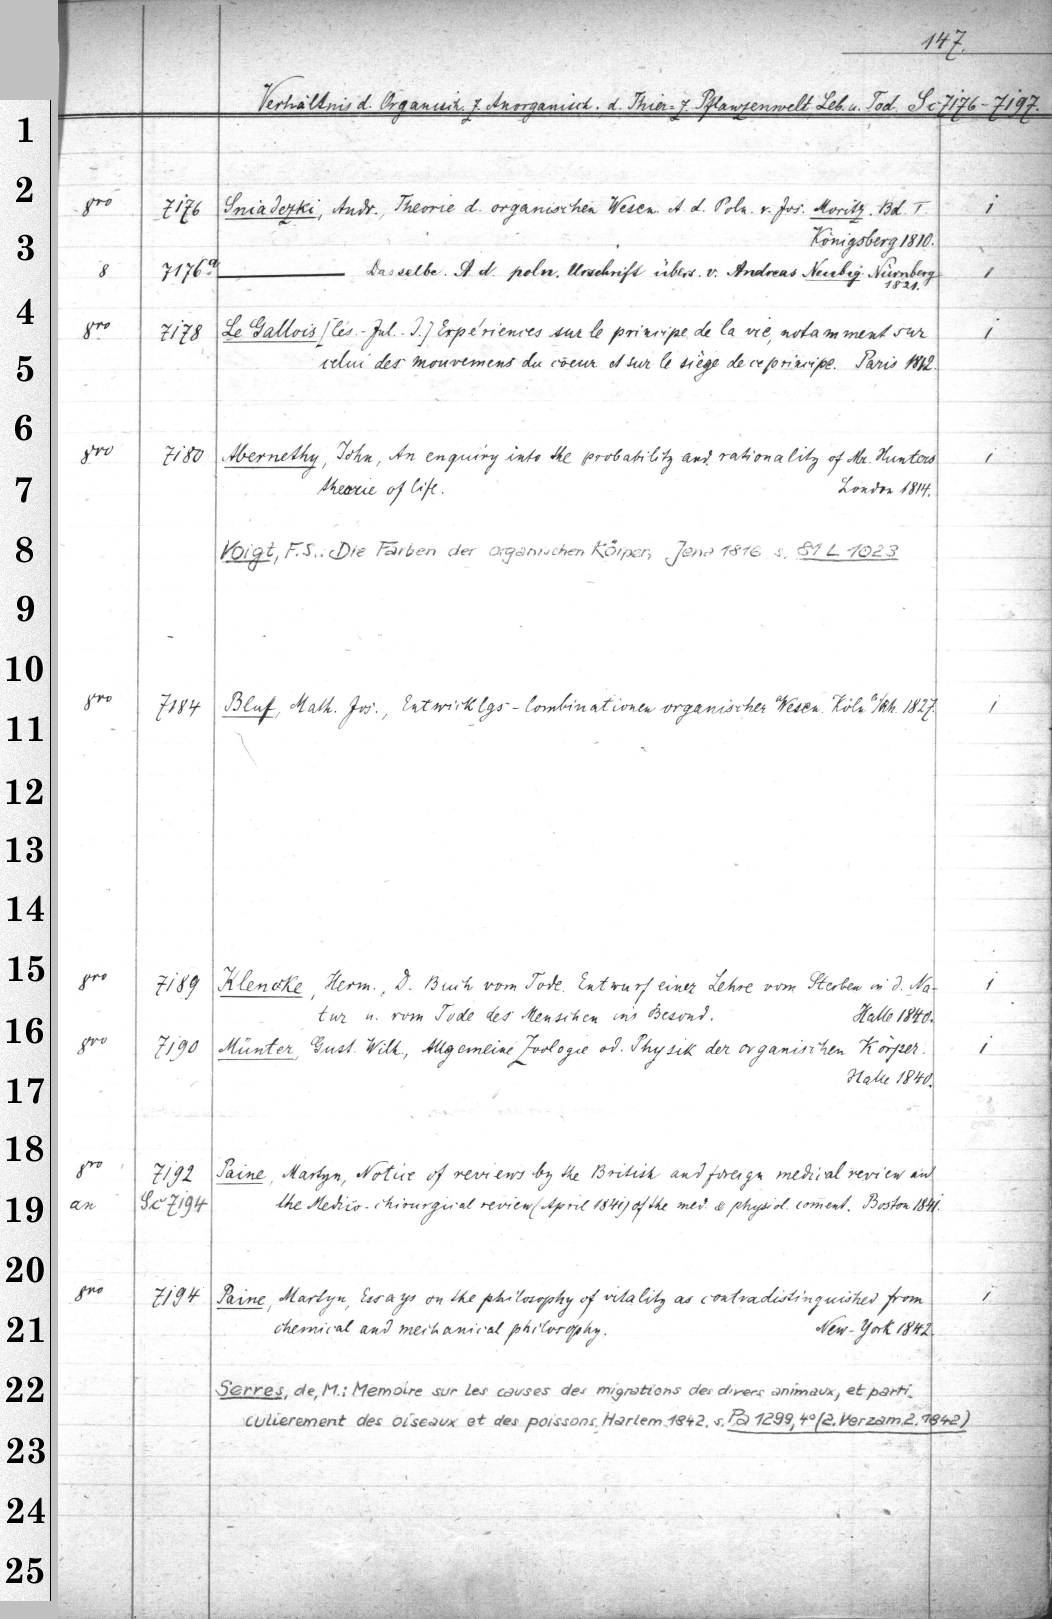 147.
Verhältnis d. Organisch. z. Anorganisch. d. Thier= z. Pflanzenwelt, Leb. u. Tod. Sc 7176-7197.
1
2
8vo 7176 Sniadezki, Andr., Theorie d. organischen Wesen. A. d. Poln. v. Jos. Moritz. Bd. I. i
Königsberg 1810.
3
8 7176a. ——— Dasselbe. A. d. poln. Urschrift übers. v. Andreas Neubig. Nürnberg 1
1821.
4
8vo 7178 Le Gallois [Cés.-Jul.-J.] Expériences sur le principe de la vie, notamment sur i
5
celui des mouvemens du coeur et sur le siège de ce principe. Paris 1812.
6
8vo 7180 Abernethy, John, An enquiry into the probability and rationality of Mr. Hunters i
7
theorie of life. London 1814.
8
Voigt, F.S.: Die Farben der organischen Körper, Jena 1816 s. 81 L 1023
9
10
8vo 7184 Bluf, Math. Jos., Entwicklgs-Combinationen organischer Wesen. Köln a/Rh. 1827. i
11
12
13
14
15
8vo 7189 Klencke, Herm., D. Buch vom Tode. Entwurf einer Lehre vom Sterben in d. Na- i
tur u. vom Tode des Menschen ins Besond. Halle 1840.
16
8vo 7190 Münter, Gust. Wilh., Allgemeine Zoologie od. Physik der organischen Körper. i
Halle 1840.
17
18
8vo 7192 Paine, Martyn, Notice of reviews by the British and foreign medical review and
19
an Sc 7194 the Medico-chirurgical review (April 1841) of the med. & physiol. coment. Boston 1841.
20
8vo 7194 Paine, Martyn, Essays on the philosophy of vitality as contradistinguished from i
21
chemical and mechanical philosophy. New-York 1842.
22
Serres, de, M.: Memoire sur les causes des migrations des divers animaux, et parti-
culierement des oiseaux et des poissons. Harlem. 1842. s. Pa 1299, 4° (2. Verzam. 2. 1842)
23
24
25